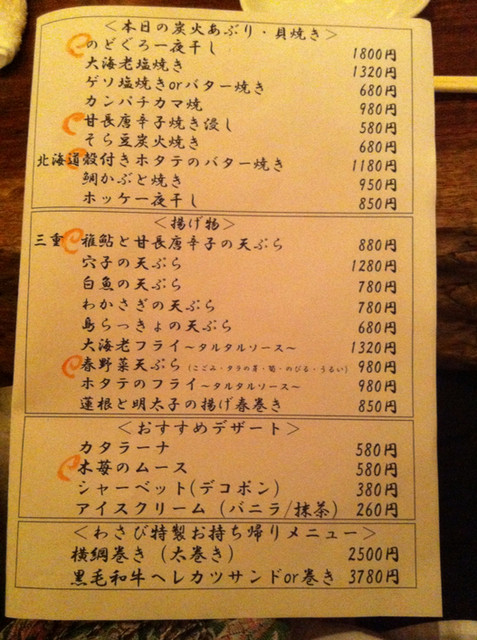 ＜本日の炭火あぶり・貝焼き＞
のどぐろ一夜干し 1800円
大海老塩焼き 1320円
ゲソ塩焼きorバター焼き 680円
カンパチカマ焼 980円
甘長唐辛子焼き浸し 580円
そら豆炭火焼き 680円
北海道殻付きホタテのバター焼き 1180円
鯛かぶと焼き 950円
ホッケ一夜干し 850円
＜揚げ物＞
三重 稚鮎と甘長唐辛子の天ぷら 880円
穴子の天ぷら 1280円
白魚の天ぷら 780円
わかさぎの天ぷら 780円
島らっきょの天ぷら 680円
大海老フライ～タルタルソース～ 1320円
春野菜天ぷら（こごみ・タラの芽・筍・のびる・うるい） 980円
ホタテのフライ～タルタルソース～ 980円
蓮根と明太子の揚げ春巻き 850円
＜おすすめデザート＞
カタラーナ 580円
木苺のムース 580円
シャーベット(デコポン) 380円
アイスクリーム（バニラ/抹茶） 260円
＜わさび特製お持ち帰りメニュー＞
横綱巻き（太巻き） 2500円
黒毛和牛ヘレカツサンドor巻き 3780円